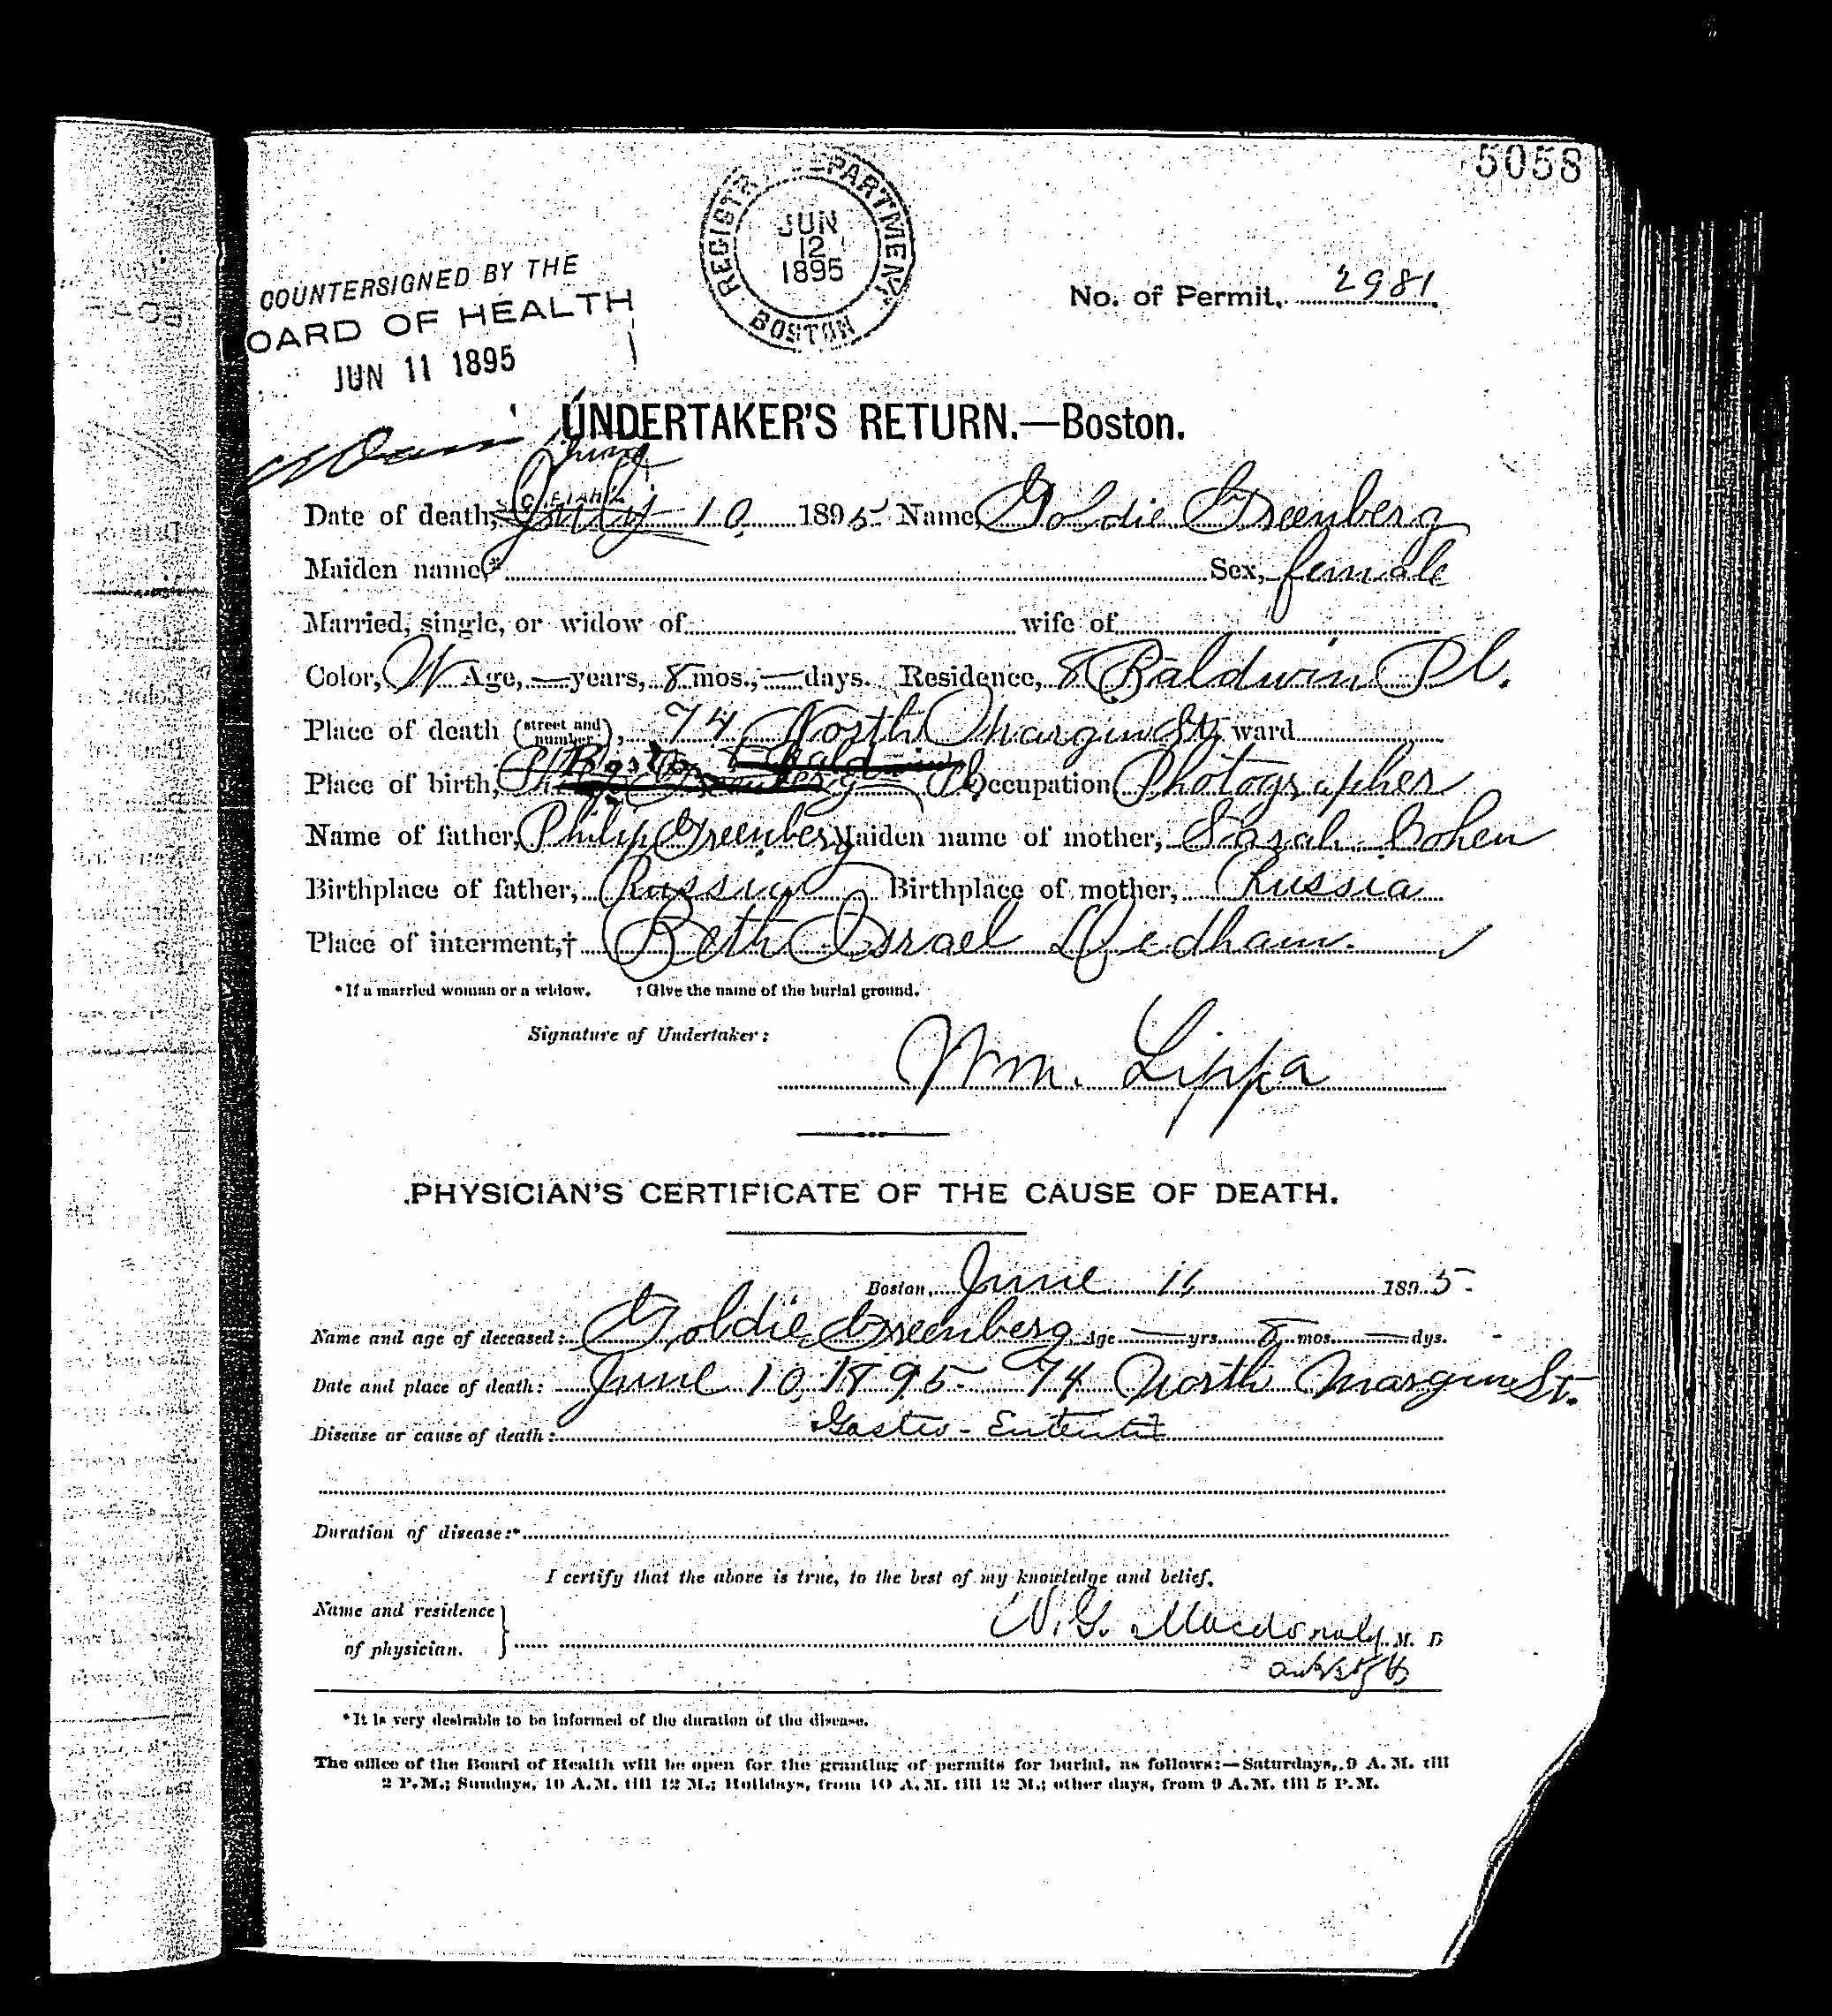 5058
REGISTR PARTMENT
JUN
12
1895
BOSTON
COUNTERSIGNED BY THE
OARD OF HEALTH
JUN 11 1895
No. of Permit, 2981
UNDERTAKER'S RETURN.—Boston.
June
Date of death, July 10 1895 Name, Goldie Greenberg
Maiden name,* Sex, female
Married, single, or widow of wife of
Color, W Age, — years, 8 mos., — days. Residence, 8 Baldwin Pl.
Place of death (street and number), 74 North Margin St. ward
Place of birth, Boston 8 Baldwin Pl Occupation Photographer
Name of father, Philip Greenberg Maiden name of mother, Sarah Cohen
Birthplace of father, Russia Birthplace of mother, Russia
Place of interment,† Beth Israel Dedham.
*If a married woman or a widow. † Give the name of the burial ground.
Signature of Undertaker:
Wm. Lippa
PHYSICIAN'S CERTIFICATE OF THE CAUSE OF DEATH.
Boston, June 11 1895.
Name and age of deceased: Goldie Greenberg Age — yrs. 8 mos. — dys.
Date and place of death: June 10, 1895. 74 North Margin St.
Disease or cause of death: Gastro-Enteritis
Duration of disease:*
I certify that the above is true, to the best of my knowledge and belief.
Name and residence
of physician. W. G. Macdonald, M. D
*It is very desirable to be informed of the duration of the disease.
The office of the Board of Health will be open for the granting of permits for burial, as follows:—Saturdays, 9 A.M. till
2 P.M.; Sundays, 10 A.M. till 12 M.; Holidays, from 10 A.M. till 12 M.; other days, from 9 A.M. till 5 P.M.